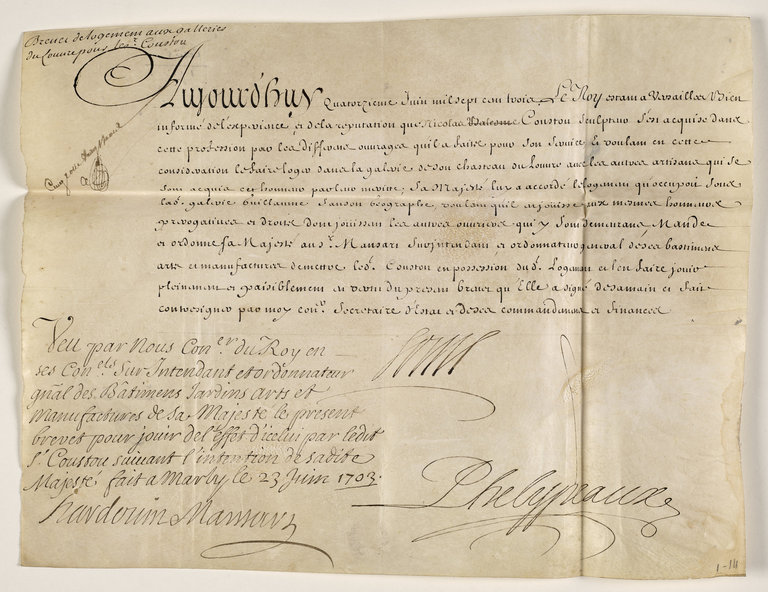 Brevet de logement aux galleries
du Louvre pour le sr. Coustou
Aujourd'huy quatorzieme Juin mil sept cent trois, Le Roy estant a Versailles Bien
informé de l'experience, et de la reputation que Nicolas Coustou Sculpteur s'est acquise dans
cette profession par les differens ouvrages qu'il a faits pour son service Et voulant en cette
consideration le faire loger dans la galerie de son chasteau du Louvre avec les autres artisans qui se
sont acquis cet honneur par leur merite; Sa Majesté luy a accordé le logement qu'occupoit sous
lad. galerie Guillaume Sanson Geographe, voulant qu'il en jouisse aux mesmes honneurs
prerogatives et droits dont jouissent les autres ouvriers qui y sont demeurans, Mande
et ordonne sa Majesté au sr. Mansart Surintendant et ordonnateur general de ses bastimens
arts et manufactures de mettre led. Coustou en possession dud. Logement et l'en faire jouir
pleinement et paisiblement en vertu du present brevet qu'Elle a signé de sa main et fait
contresigner par moy conr. Secretaire d'Estat et de ses commandemens et finances
Veu par Nous Coner. du Roy en
ses Conels. Sur Intendant et ordonnateur
gnal des Bâtimens Jardins Arts et
Manufactures de Sa Majesté le present
brevet pour jouir de l'effet d'icelui par ledit
Sr. Coustou suivant l'intention de sadite
Majesté fait a Marly le 23 Juin 1703.
Louis
Phelypeaux
hardouin Mansart
1-14